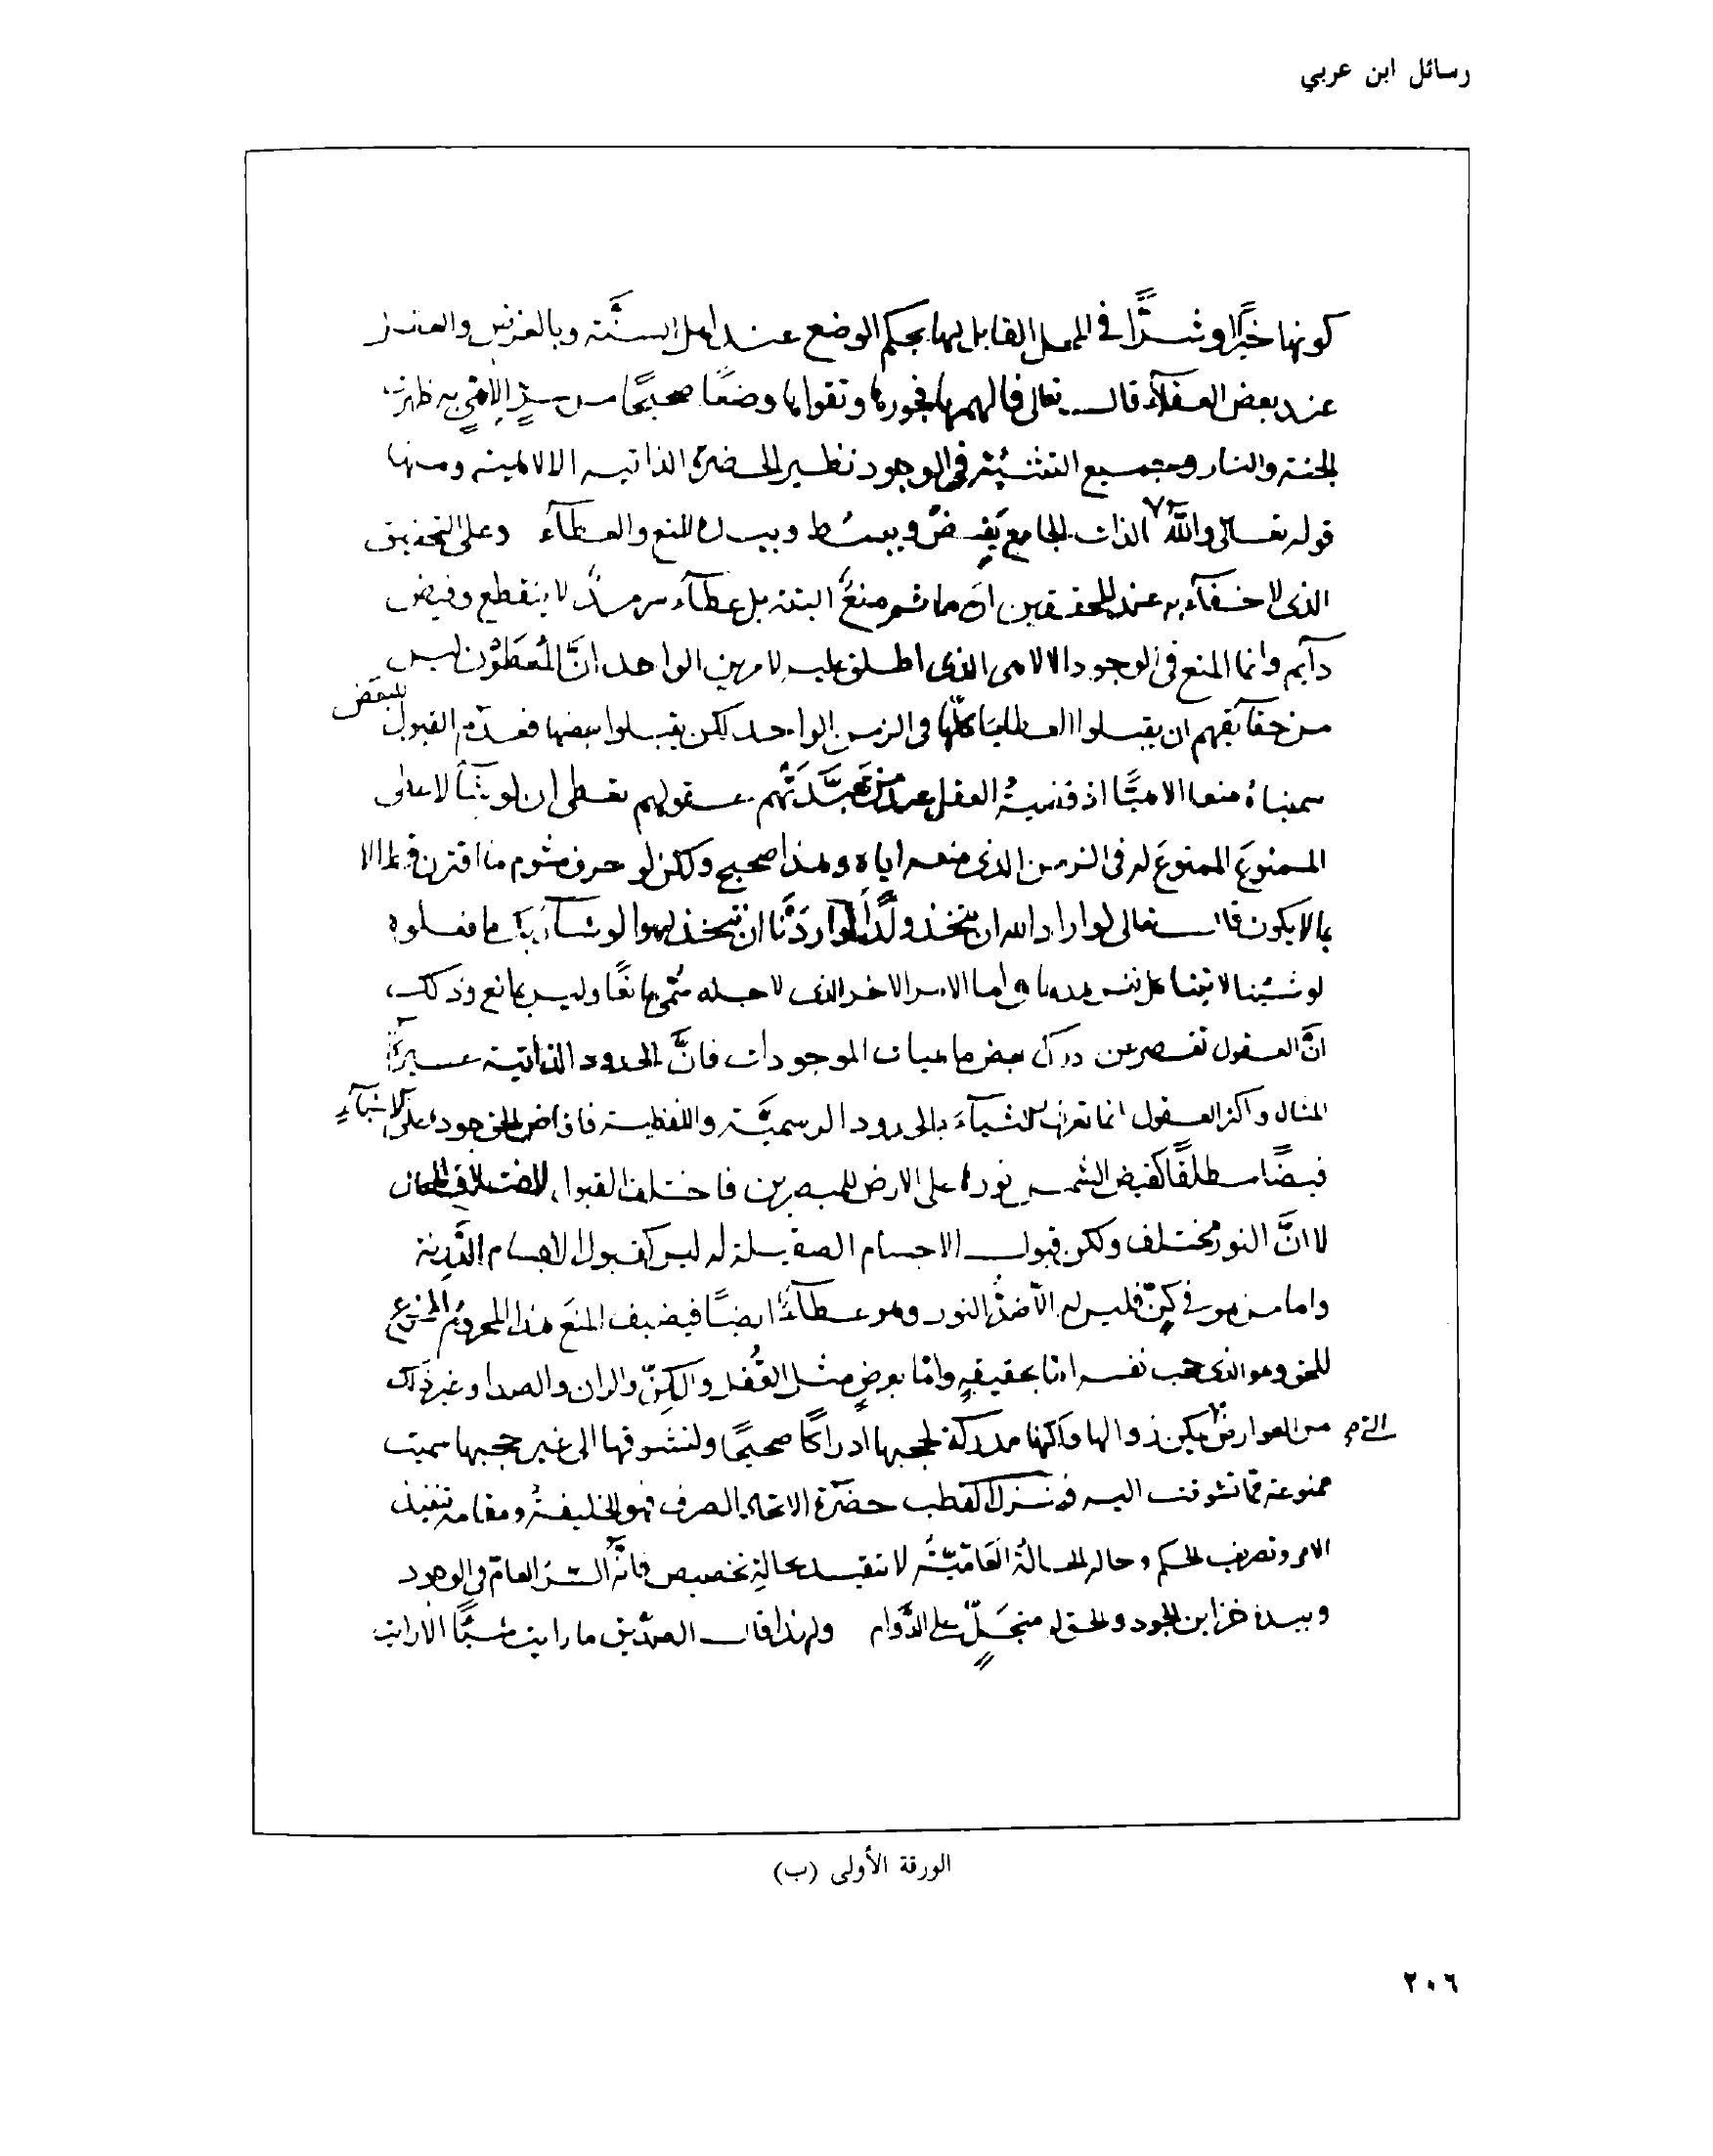 رسائل ابن عربي
كونها خيرًا وشرًّا في المحل القابل لها بحكم الوضع عند اهل السنّة وبالعرض
عند بعض العقلاء قال تعالى فالهمها فجورها وتقواها وضعًا صحيحًا من سرٍّ الاهيٍّ به ظهرت
الجنة والنار وجميع في الوجود نظير الحضرة الذاتيه الالاهية ومنها
قوله تعالى والله الذات الجامع يقبض ويبسط وبيده المنع والعطآء وعلى التحقيق
الذى لا خفآء به عند المحققين انه ما ثم منعٌ البتة بل عطآء سرمدٌ لا ينقطع وفيض
دآيم وانما المنع في الوجود الالاهى الذى اطلق عليه لامرين الواحد انَّ المُعطَوْن ليس
من حقآيقهم ان يقبلوا العطايا كلّها في الزمن الواحد لكن يقبلوا بعضها فعدم القبول للبعض
سميناه منعا الاهيًّا اذ قضية العقل عند من تعبّدَتْهم عقولهم تعطى ان لو شآء لاعطى
الممنوع الممنوع له في الزمن الذى منعه اياه وهذا صحيح ولكن لو حرف مشوم ما اقترن قط الا
بما لا يكون قال تعالى لو اراد الله ان يتخذ ولدًا لو اردْنا ان نتخذ لهوا لو شآء ربك ما فعلوه
لو شئنا لاتينا كل نفس هداها واما الامر الاخر الذى لاجله سُمّى مانعًا وليس بمانع وذلك
انَّ العقول تقصر عن درك بعض ماهيات الموجودات فانَّ الحدود الذاتية عسيرة
المنال واكثر العقول انما تعرف الاشيآء بالحدود الرسميَّة واللفظية فافاض الحق جوده على الاشيآء
فيضًا مطلقًا كفيض الشمس نورها على الارض للمبصرين فاختلف القبول لاختلاف المحال
لا انَّ النور مختلف ولكن قبول الاجسام الصقيلة له ليس كقبول الاجسام الدَّرِنة
واما من هو في كِنّ فليس له الا ضدُّ النور وهو عطآءٌ ايضًا فيضيف المنعَ هذا المحرومُ الممنوع
للحق وهو الذى حجب نفسه امّا بحقيقةٍ وامّا بعرضٍ مثل القُفل والكِنّ والران والصدا وغير ذلك
من العوارض التي يمكن زوالها ولكنها مدركة لحجبها ادراكًا صحيحًا ولتشوفها الى غير حجبها سميت
ممنوعة مما تشوقت اليه فمنزل القطب حضرة الايجاد الصرف فهو الخليفة ومقامه تنفيذ
الامر وتصريف الحكم وحاله الحالة العامّيّة لا تتقيد بحالةِ تخصيص فانه السترُ العامّ في الوجود
وبيده خزاين الجود والحق له متجلٍّ على الدَّوام ولهذا قال الصدّيق ما رايت شيئًا الا رايت
الورقة الأولى (ب)
٢٠٦